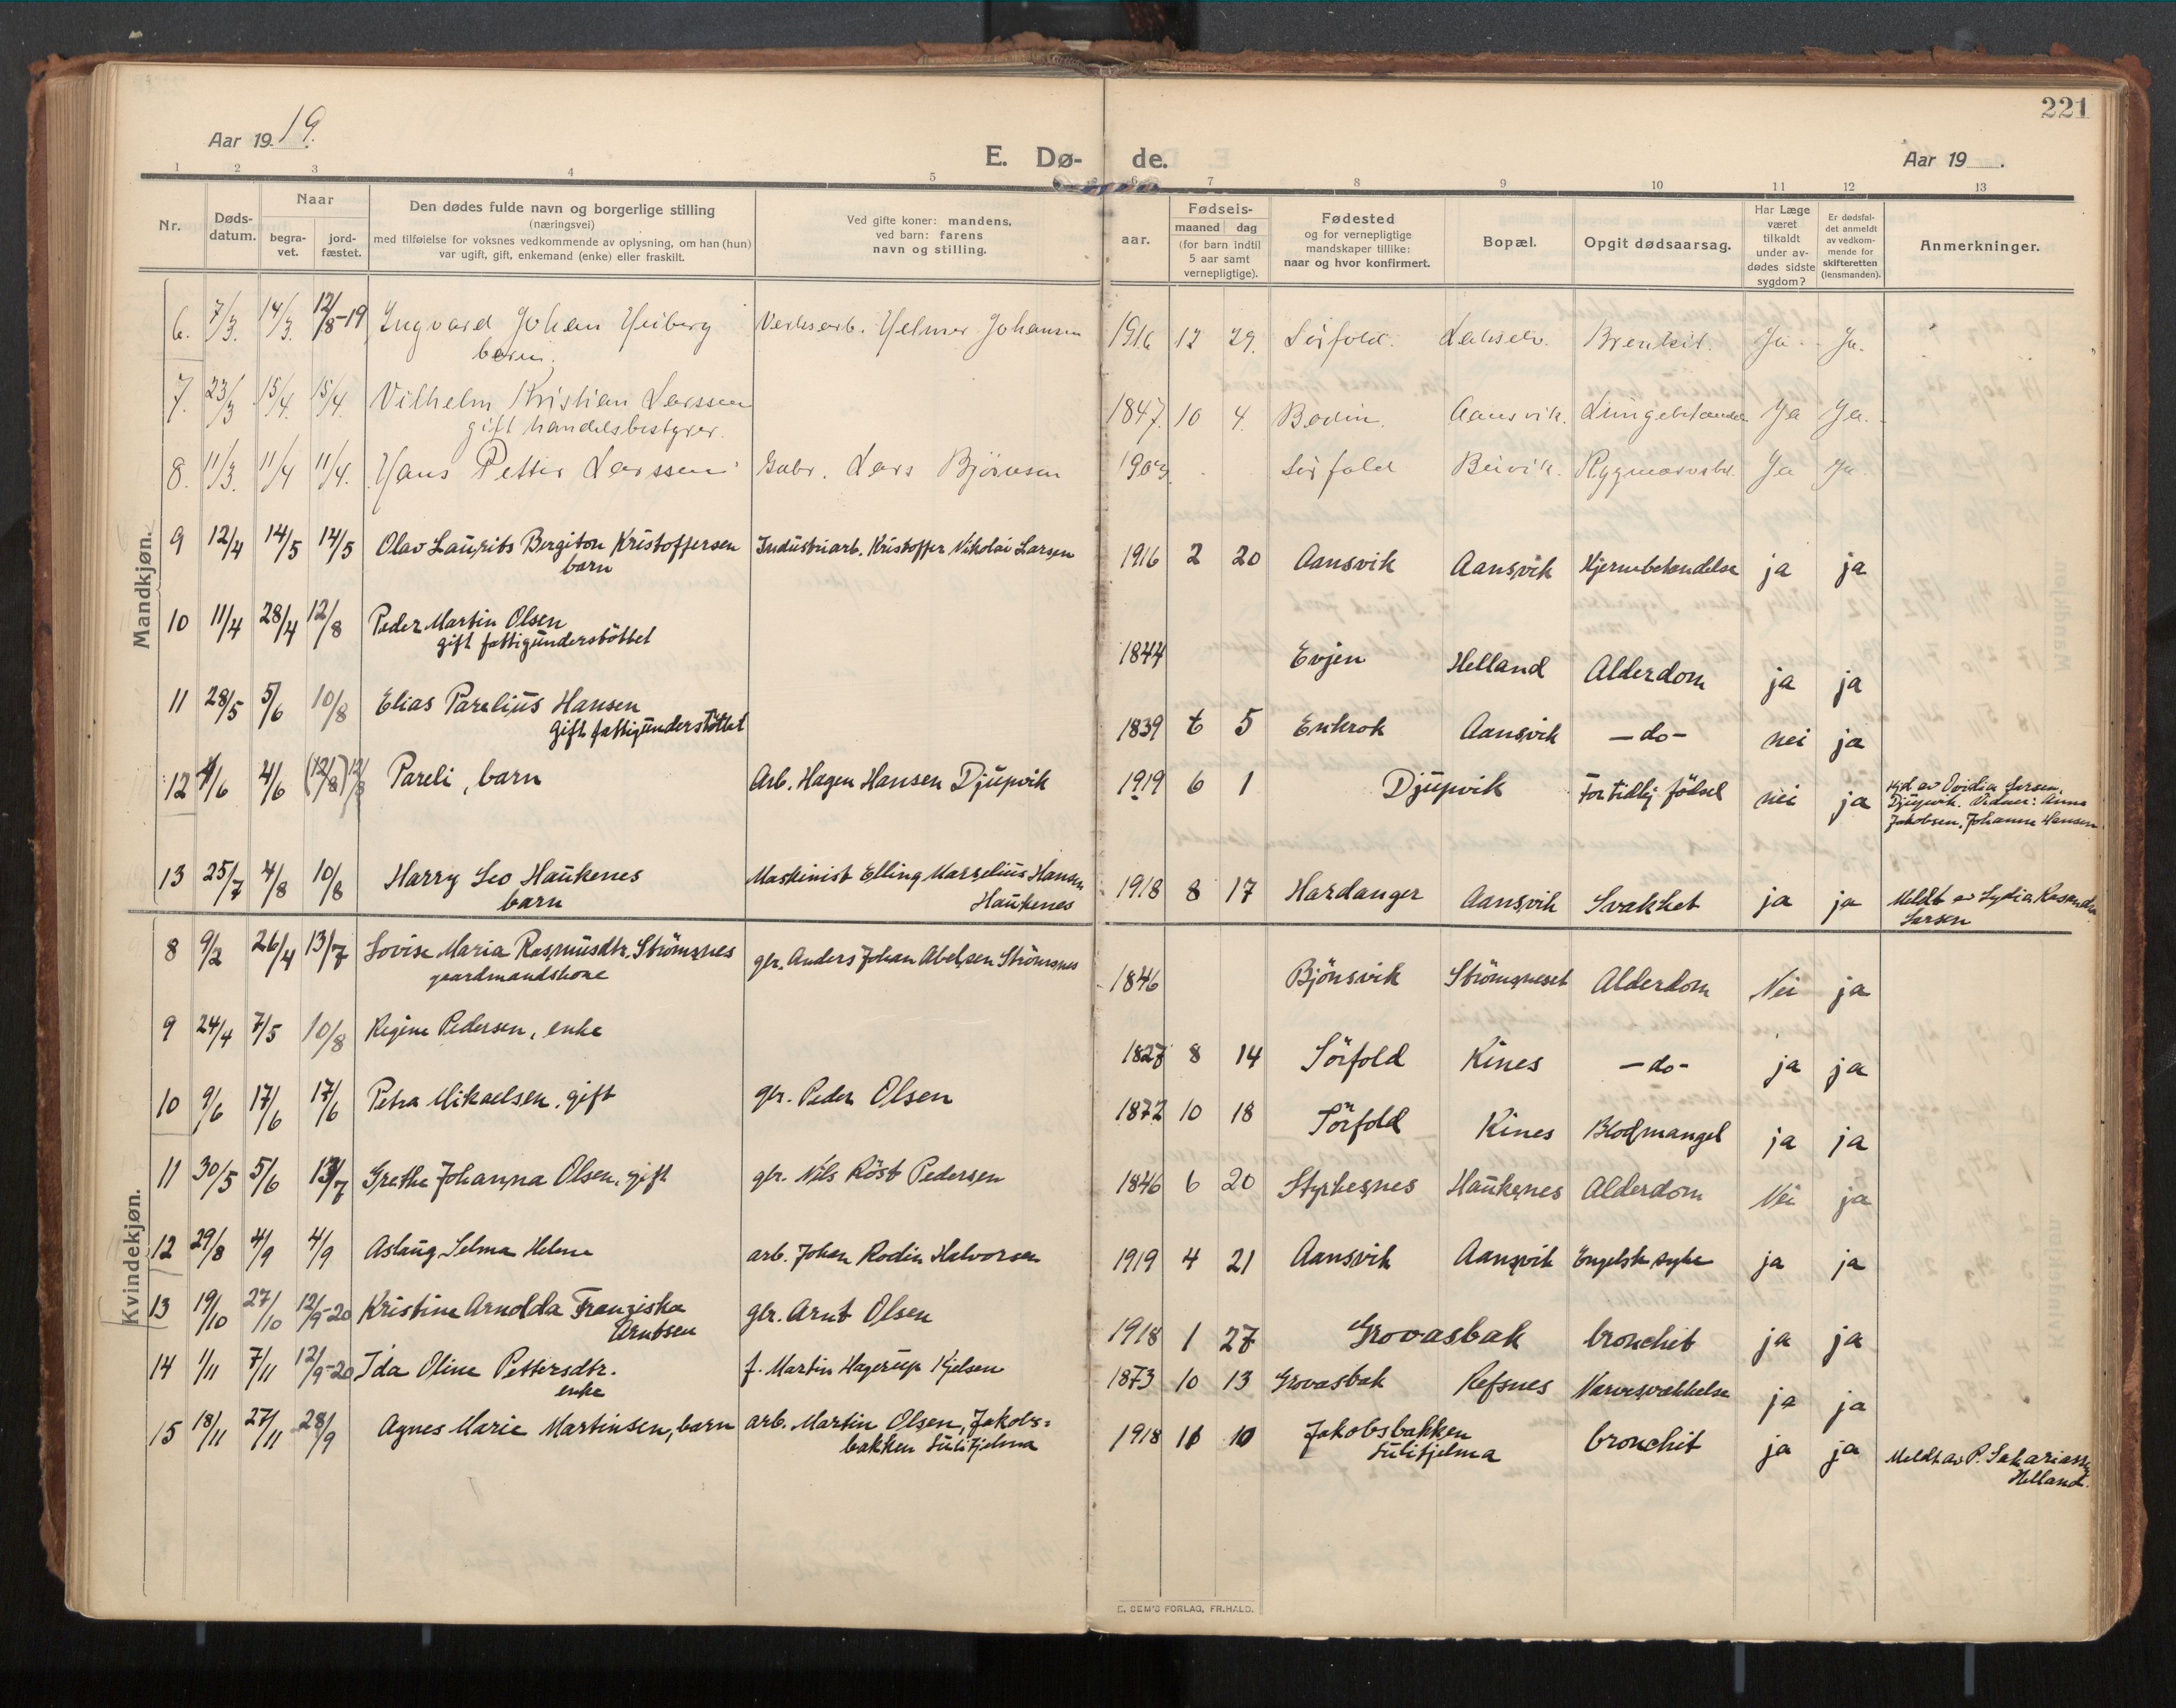 221
Aar 19 19.
E. Dø- de.
Aar 19 .
1 2 3 4 5 6 7 8 9 10 11 12 13
Nr. Døds-datum. Naar begra-vet. jord-fæstet. Den dødes fulde navn og borgerlige stilling (næringsvei) med tilføielse for voksnes vedkommende av oplysning, om han (hun) var ugift, gift, enkemand (enke) eller fraskilt. Ved gifte koner: mandens, ved barn: farens navn og stilling. aar. Fødsels- maaned dag (for barn indtil 5 aar samt vernepligtige). Fødested og for vernepligtige mandskaper tillike: naar og hvor konfirmert. Bopæl. Opgit dødsaarsag. Har Læge været tilkaldt under av-dødes sidste sygdom? Er dødsfal-det anmeldt av vedkom-mende for skifteretten (lensmanden). Anmerkninger.
Mandkjøn.
6. 7/3. 14/3. 12/8-19 Ingvard Johan Heiberg Verksarb. Helmer Johansen 1916 12 29. Sörfold. Lakselv. Bronkit. Ja Ja.
barn.
7. 23/3 15/4. 15/4. Vilhelm Kristian Larssen 1847. 10 4. Bodin. Aansvik. Lungebetændelse Ja Ja.
gift handelsbestyrer.
8. 11/3. 11/4 11/4. Hans Petter Larssen Gbr. Lars Björnsen 1903. Sörfold Beivik. Rygmarvsbet. Ja Ja.
9 12/4 14/5 14/5 Olav Laurits Bergiton Kristoffersen Industriarb. Kristoffer Nikolai Larsen 1916 2 20 Aansvik Aansvik Hjernebetendelse ja ja
barn
10 11/4 28/4 12/8 Peder Martin Olsen 1844 Evjen Helland Alderdom ja ja
gift fattigunderstöttet
11 28/5 5/6 10/8 Elias Parelius Hansen 1839 6 5 Enkrok Aansvik -do- nei ja
gift fattigunderstöttet
12 4/6 4/6 (12/8) 12/8 Pareli, barn Arb. Hagen Hansen Djupvik 1919 6 1 Djupvik For tidlig födsel nei ja Hjd av Ovidia Larsen,
Djupvik. Vidner: Anna
Jakobsen, Johanne Hansen
13 25/7 4/8 10/8 Harry Leo Haukenes Maskinist Elling Marselius Hansen 1918 8 17 Hardanger Aansvik Svakhet ja ja Meldt av Lydia
barn Haukenes Larsen
Kvindekjøn.
8 9/2 26/4 13/7 Lovise Maria Rasmusdtr. Strömsnes gbr. Anders Johan Abelsen Strömsnes 1846 Bjönsvik Strömsneset Alderdom Nei ja
gaardmandskone
9 24/4 7/5 10/8 Regine Pedersen, enke 1827 8 14 Sörfold Kines -do- ja ja
10 9/6 17/6 17/6 Petra Mikaelsen, gift gbr. Peder Olsen 1872 10 18 Sörfold Kines Blodmangel ja ja
11 30/5 5/6 13/7 Grethe Johanna Olsen, gift gbr. Nils Röst Pedersen 1846 6 20 Styrkesnes Haukenes Alderdom Nei ja
12 29/8 4/9 4/9 Aslaug Selma Helene arb. Johan Rodin Halvorsen 1919 4 21 Aansvik Aansvik Engelsk syke ja ja
13 19/10 27/10 12/9-20 Kristine Arnolda Franziska gbr. Arnt Olsen 1918 1 27 Grovasbak bronchit ja ja
Arntsen
14 1/11 7/11 12/9-20 Ida Oline Pettersdtr. f. Martin Hagerup Kjelsen 1873 10 13 Grovasbak Refsnes Nervesvækkelse ja ja
enke
15 18/11 27/11 28/9 Agnes Marie Martinsen, barn arb. Martin Olsen, Jakobs= 1918 11 10 Jakobsbakken bronchit ja ja Meldt av P. Sakariassen
bakken Sulitjelma Sulitjelma Helland.
E. SEM'S FORLAG, FR.HALD.